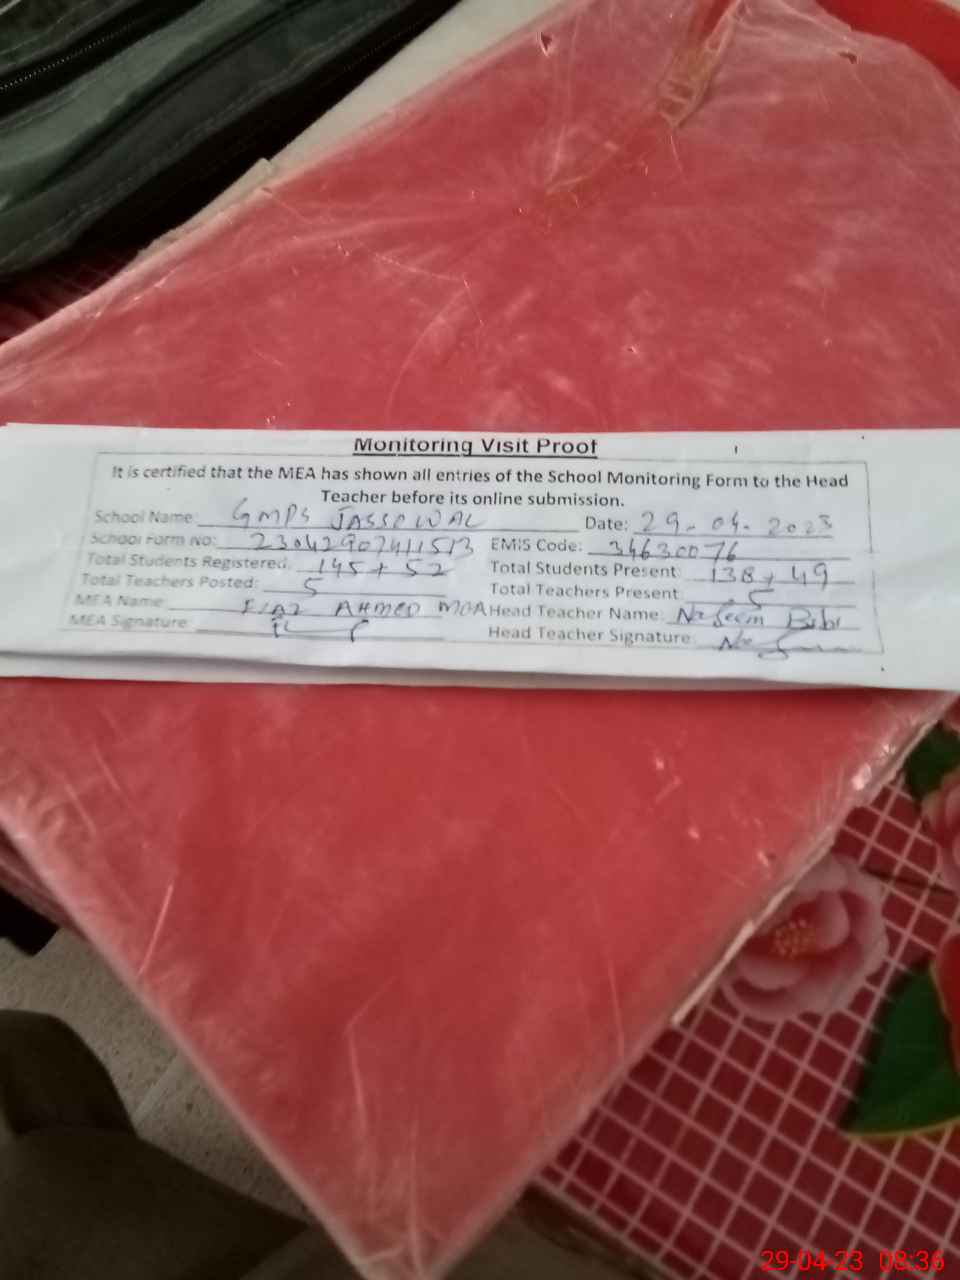 Monitoring Visit Proof
It is certified that the MEA has shown all entries of the School Monitoring Form to the Head
Teacher before its online submission.
School Name: GMPS JASSOWAL Date: 29-04-2023
School Form No: 23042907411513 EMIS Code: 34630076
Total Students Registered: 145+52 Total Students Present: 138+49
Total Teachers Posted: 5 Total Teachers Present: 5
MEA Name: AHMED Head Teacher Name: Naseem Bibi
MEA Signature: Head Teacher Signature:
29-04-23 08:36